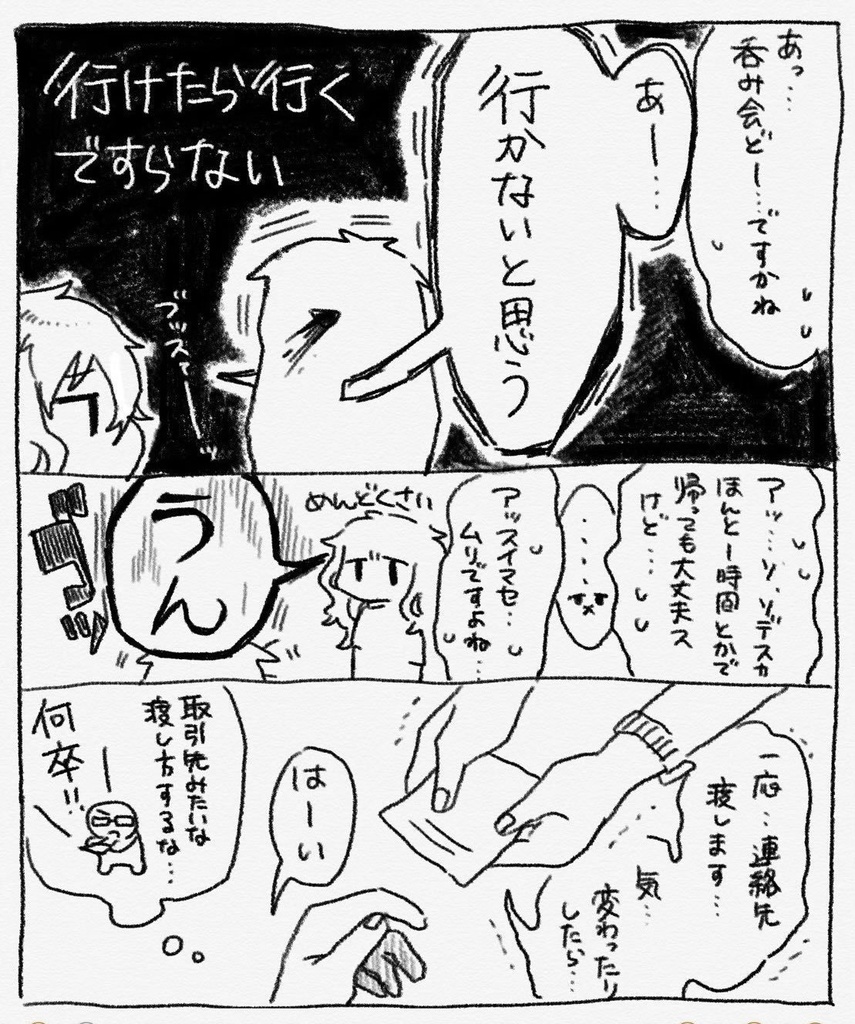 あっ…
呑み会どー…ですかね
あー…
行かないと思う
行けたら行く
ですらない
ブッスァーーッ
アッ…ソ、ソデスカ
ほんと1時間とかで
帰っても大丈夫ス
けど…
…
アッスイマセ…
ムリですよね…
めんどくさい
うん
一応…連絡先
渡します…
気…
変わったり
したら…
はーい
取引先みたいな
渡し方するな…
何卒!!